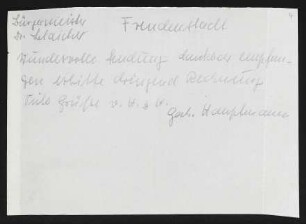 Bürgermeister
Dr. Blaicher Freudenstadt
wundervolle Sendung dankbar empfan-
gen erbitte dringend Rechnung
Viele Grüße v. H. z. H.
Gerh. Hauptmann